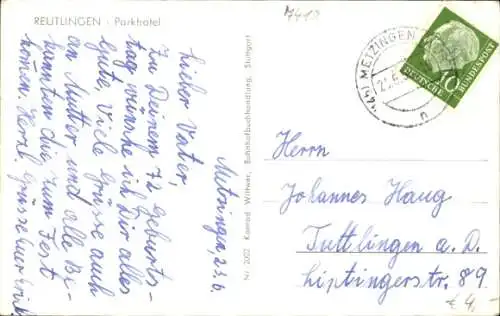 REUTLINGEN - Parkhotel
7412
Metzingen, 23.6.
Lieber Vater,
Zu Deinem 72 Geburts-
tag wünsche ich Dir alles
Gute, Viele Grüsse auch
an Mutter und alle Be-
kannten die zum Fest
kommen. Herzl. Grüsse
Nr. 2052 Konrad Wittwer, Bahnhofbuchhandlung, Stuttgart
(14b) METZINGEN
n
DEUTSCHE BUNDESPOST
10
Herrn
Johannes Haug
Tuttlingen a. D.
Liptingerstr. 89
€ 4,-